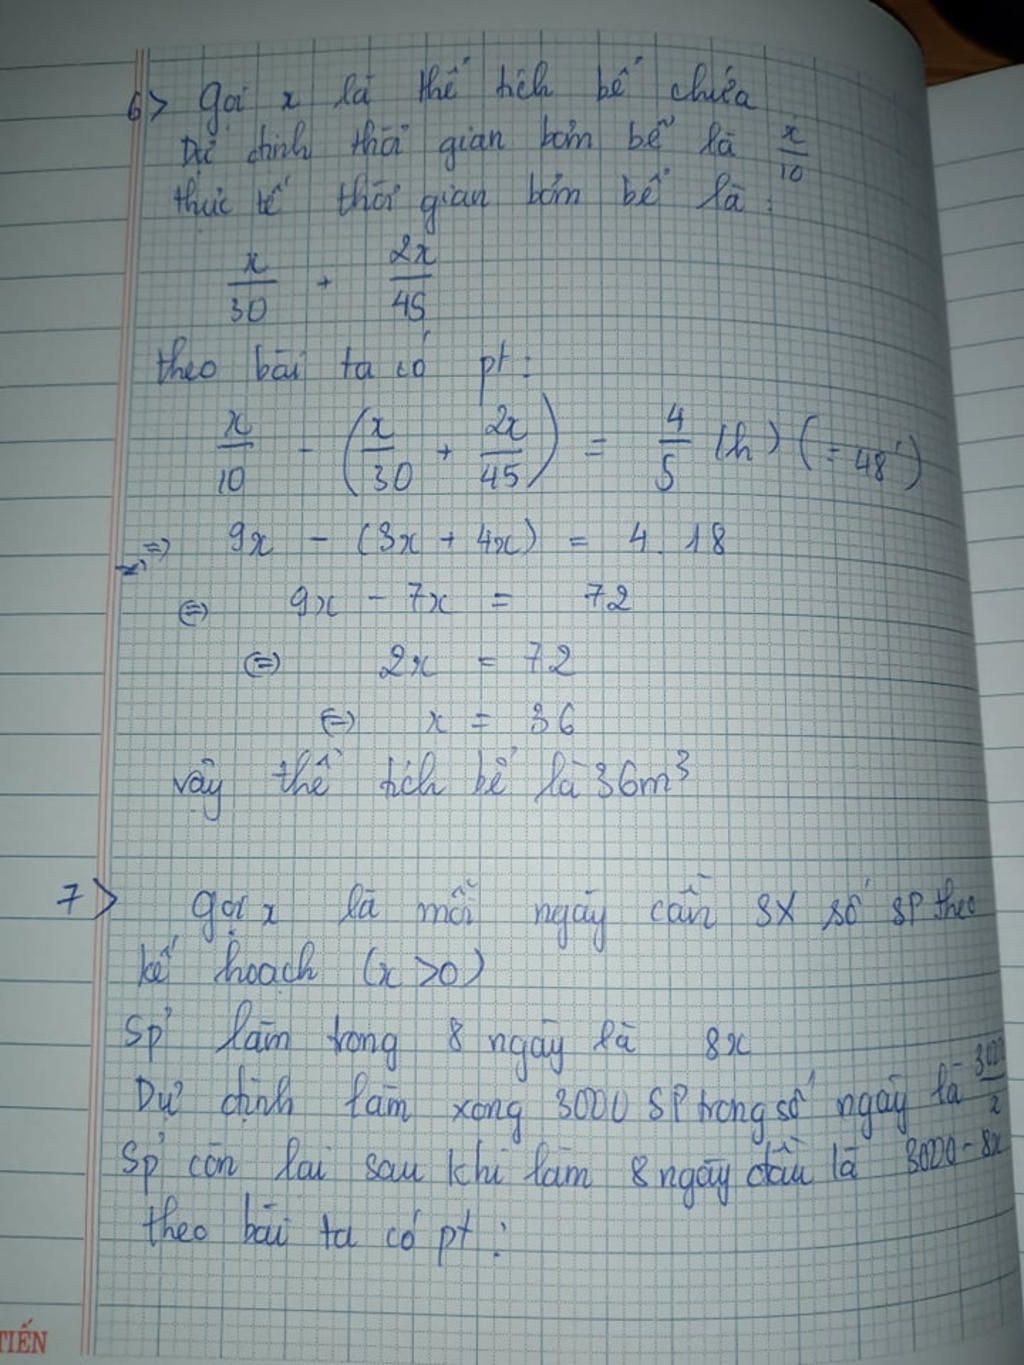 6> Gọi x là thể tích bể chứa
Dự định thời gian bơm bể là x/10
thực tế thời gian bơm bể là :
x/30 + 2x/45
theo bài ta có pt :
x/10 - (x/30 + 2x/45) = 4/5 (h) (= 48')
=> 9x - (3x + 4x) = 4 . 18
<=> 9x - 7x = 72
<=> 2x = 72
<=> x = 36
vậy thể tích bể là 36m³
7> Gọi x là mỗi ngày cần SX số SP theo
kế hoạch (x >0)
Sp làm trong 8 ngày là 8x
Dự định làm xong 3000 SP trong số ngày là 3000/x
Sp còn lại sau khi làm 8 ngày đầu là 3000 - 8x
theo bài ta có pt :
TIẾN